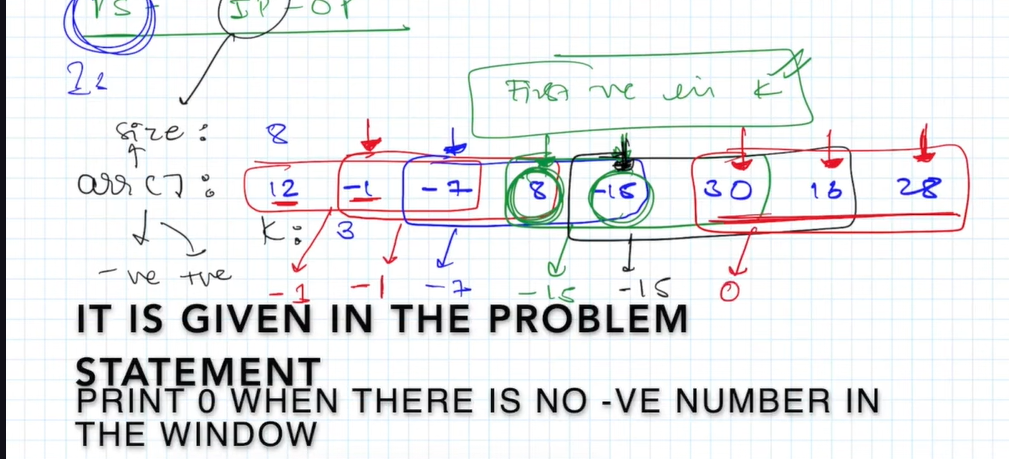 PS- IP-OP
First -ve in K
size: 8
arr[]: 12 -1 -7 8 -15 30 16 28
K: 3
-ve +ve
-1 -1 -7 -15 -15 0
IT IS GIVEN IN THE PROBLEM
STATEMENT
PRINT 0 WHEN THERE IS NO -VE NUMBER IN
THE WINDOW